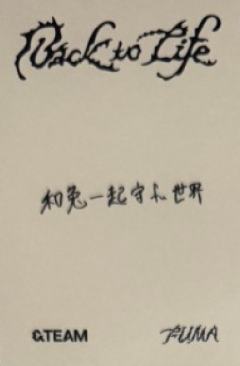 Back to Life
和兔一起守护世界
&TEAM
FUMA